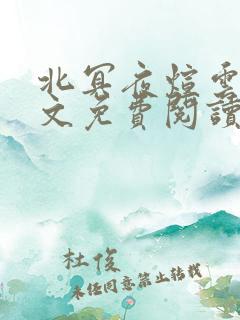 北冥夜煊雲
文免費閱讀
杜俊
未經同意禁止轉載